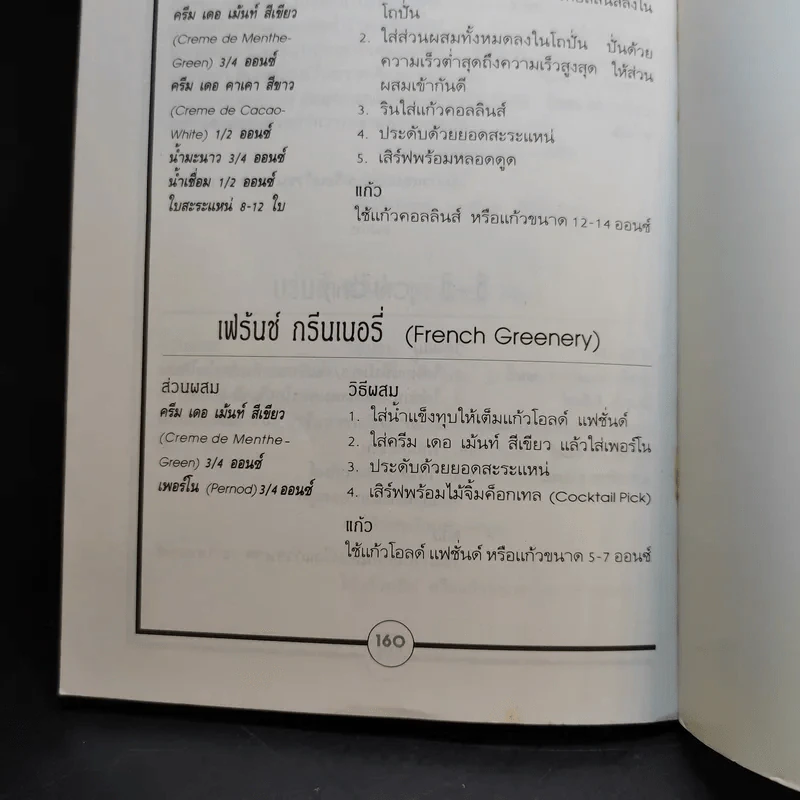 ครีม เดอ เม้นท์ สีเขียว
(Creme de Menthe-
Green) 3/4 ออนซ์
ครีม เดอ คาเคา สีขาว
(Creme de Cacao-
White) 1/2 ออนซ์
น้ำมะนาว 3/4 ออนซ์
น้ำเชื่อม 1/2 ออนซ์
ใบสะระแหน่ 8-12 ใบ
โถปั่น
2. ใส่ส่วนผสมทั้งหมดลงในโถปั่น ปั่นด้วย
ความเร็วต่ำสุดถึงความเร็วสูงสุด ให้ส่วน
ผสมเข้ากันดี
3. รินใส่แก้วคอลลินส์
4. ประดับด้วยยอดสะระแหน่
5. เสิร์ฟพร้อมหลอดดูด
แก้ว
ใช้แก้วคอลลินส์ หรือแก้วขนาด 12-14 ออนซ์
เฟร้นช์ กรีนเนอรี่ (French Greenery)
ส่วนผสม
ครีม เดอ เม้นท์ สีเขียว
(Creme de Menthe-
Green) 3/4 ออนซ์
เพอร์โน (Pernod) 3/4 ออนซ์
วิธีผสม
1. ใส่น้ำแข็งทุบให้เต็มแก้วโอลด์ แฟชั่นด์
2. ใส่ครีม เดอ เม้นท์ สีเขียว แล้วใส่เพอร์โน
3. ประดับด้วยยอดสะระแหน่
4. เสิร์ฟพร้อมไม้จิ้มค็อกเทล (Cocktail Pick)
แก้ว
ใช้แก้วโอลด์ แฟชั่นด์ หรือแก้วขนาด 5-7 ออนซ์
160